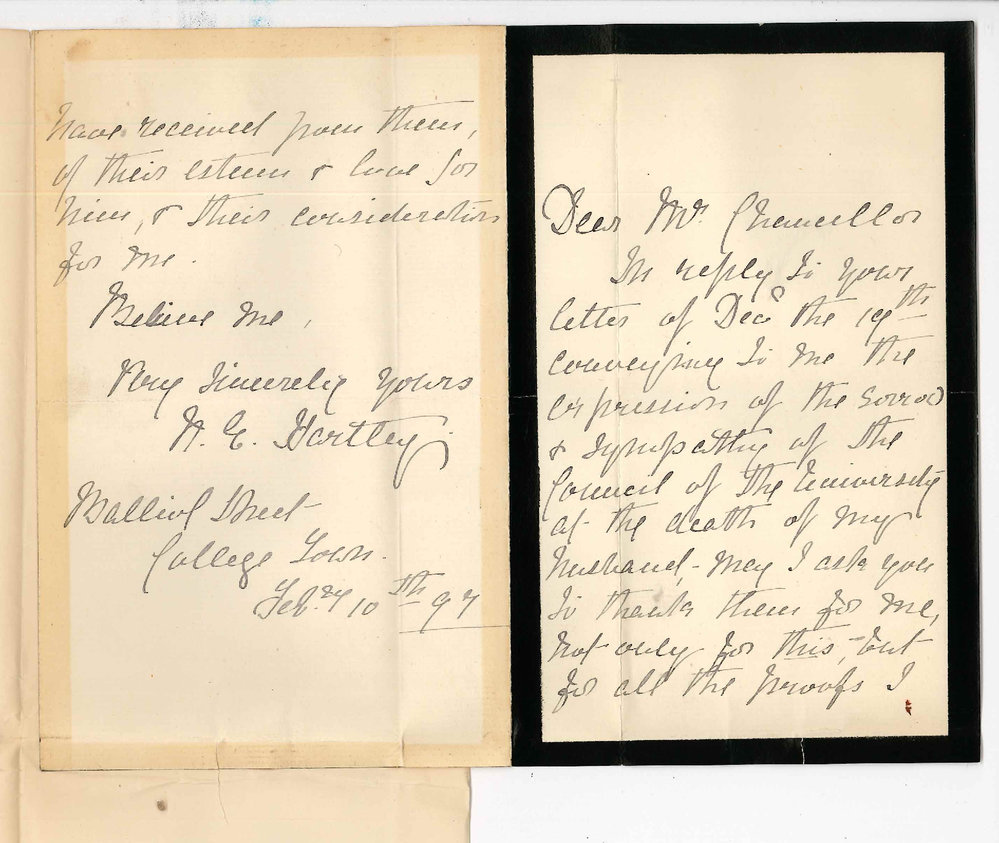 Dear Mr. Chancellor
In reply to your
letter of Decr the 19th
conveying to me the
expression of the sorrow
& sympathy of the
Council of the University
at the death of my
husband, - may I ask you
to thank them for me,
not only for this, - but
for all the proofs I
have received from them,
of their esteem & love for
him, & their consideration
for me.
Believe me,
Very sincerely yours
Hartley.
Balliol Street
College Town.
Febry 10th 97